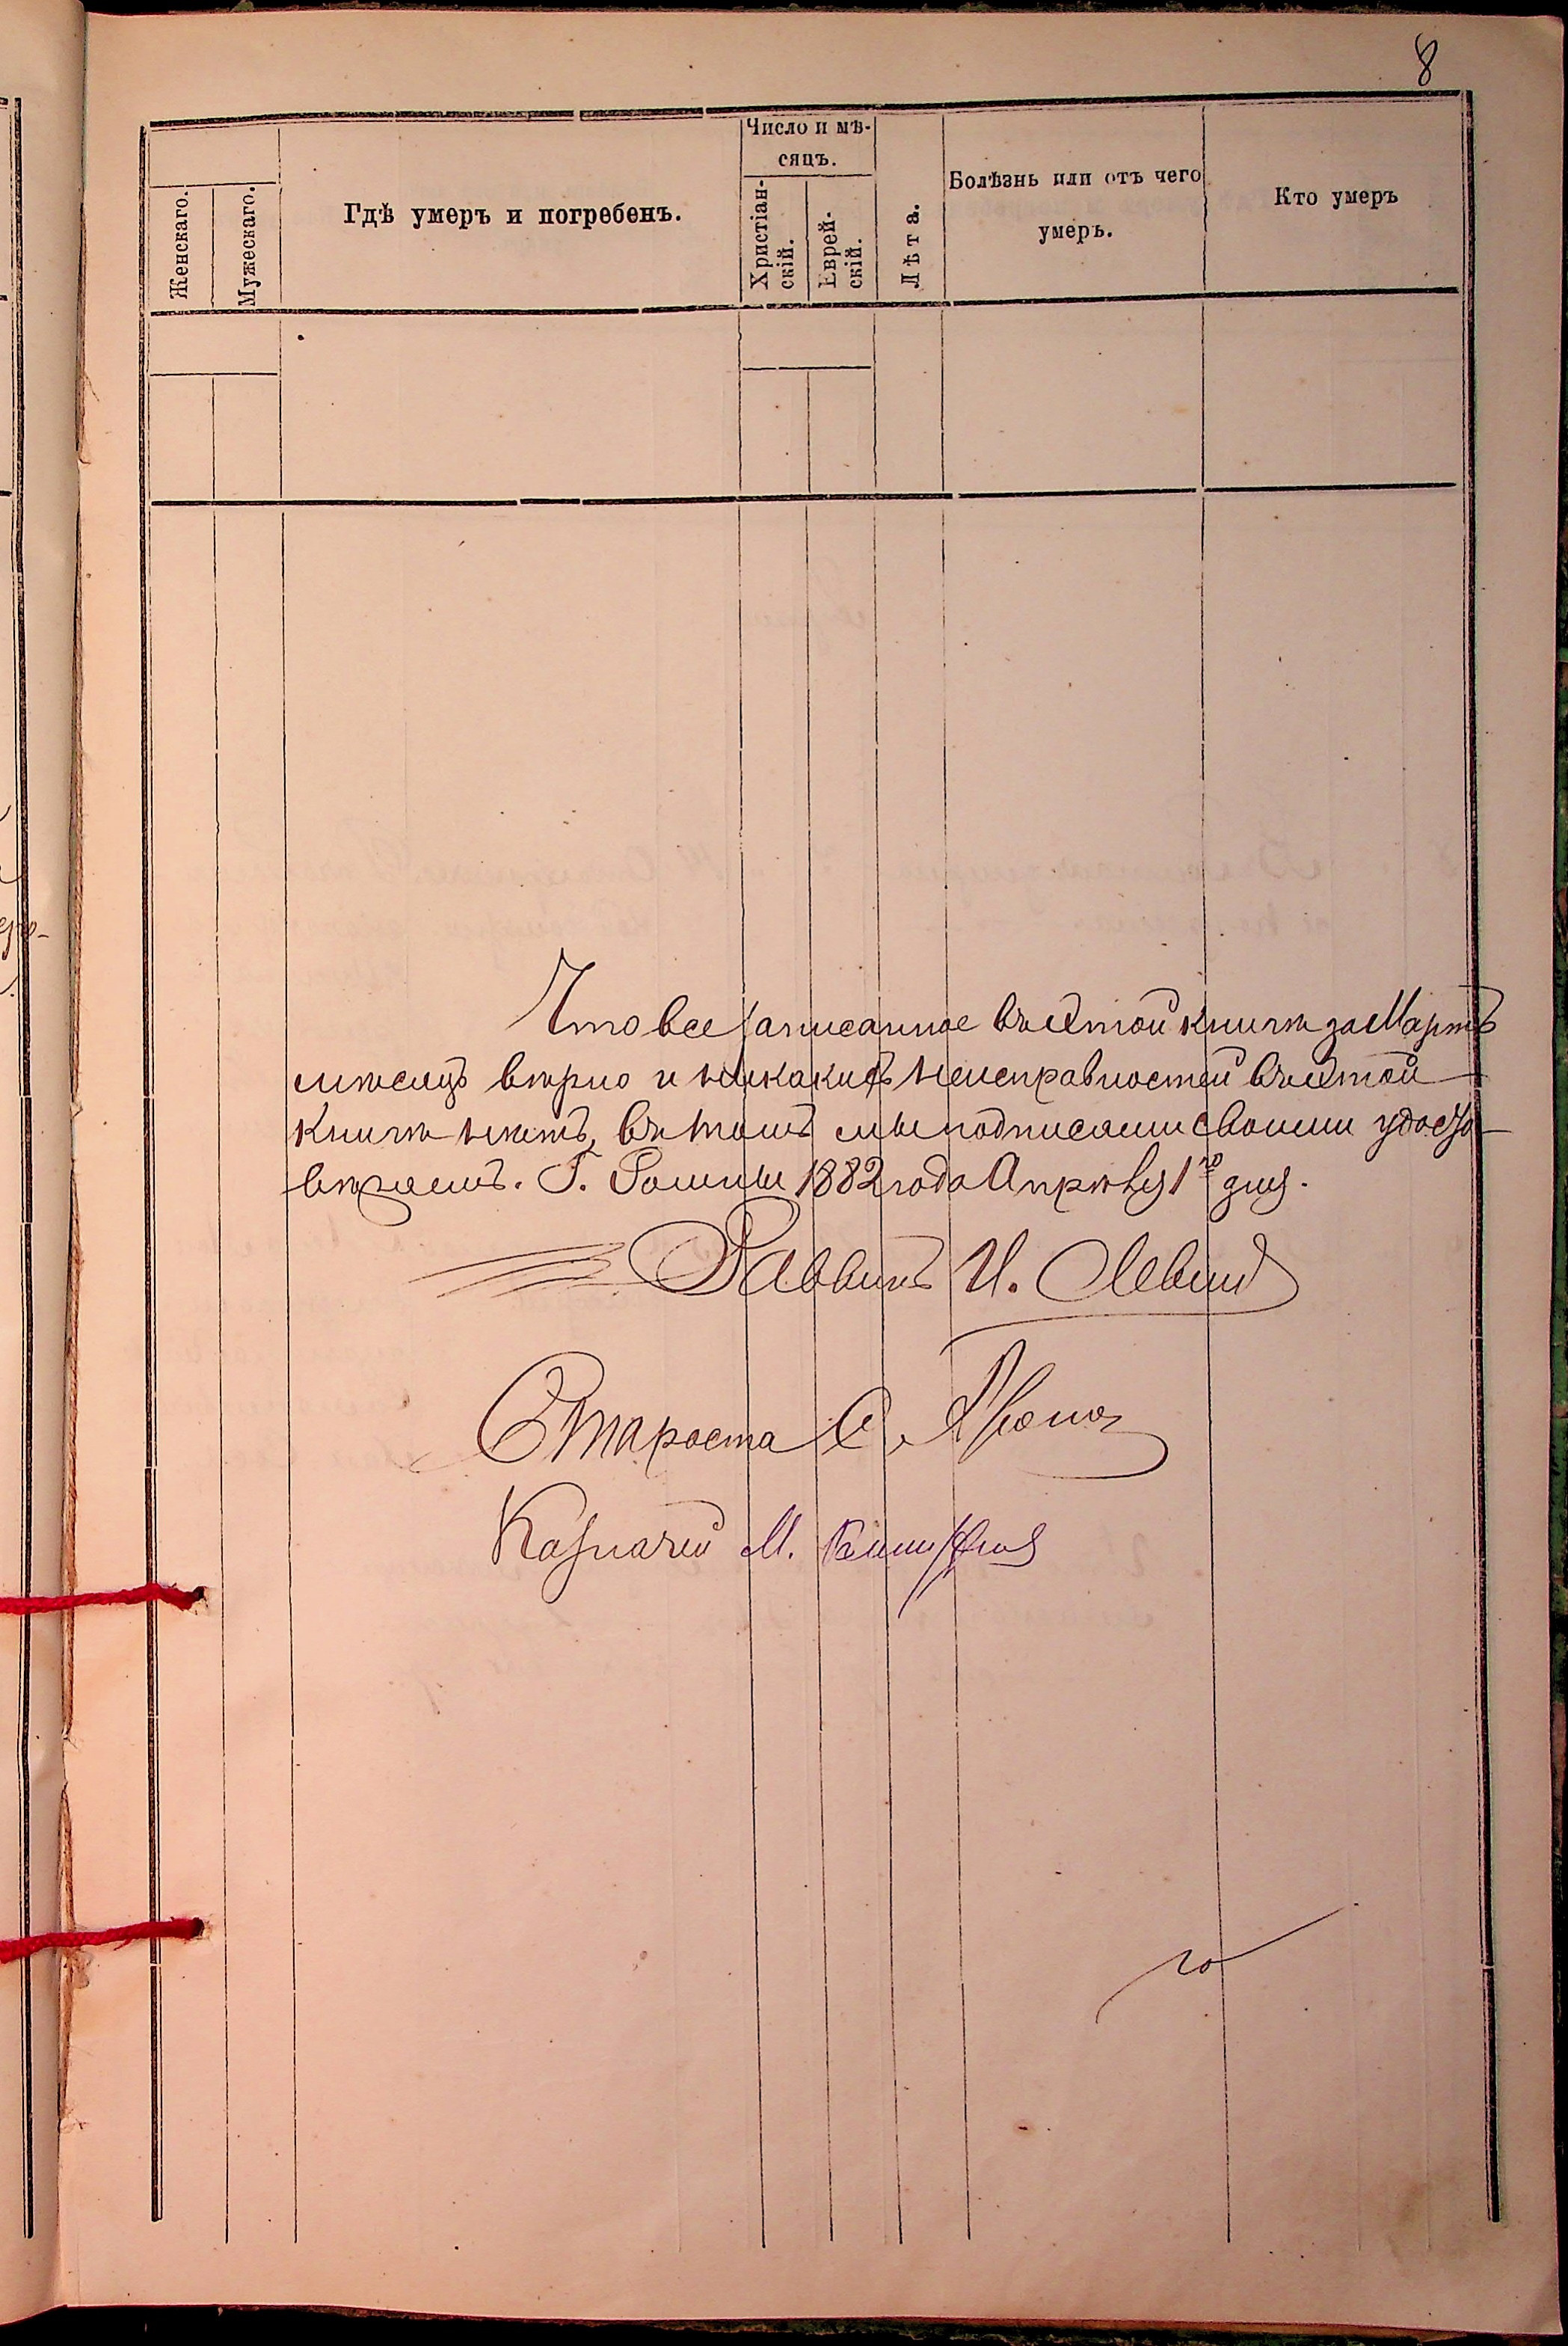 8
Женскаго.
Мужескаго.
Гдѣ умеръ и погребенъ.
Число и мѣ-
сяцъ.
Христіан-
скій.
Еврей-
скій.
Лѣта.
Болѣзнь или отъ чего
умеръ.
Кто умеръ
Что все записанное въ этой книгѣ за Мартъ
мѣсяцъ вѣрно и никакихъ неисправностей въ этой
книгѣ нѣтъ, въ томъ мы подписами своими удосто-
вѣряемъ. Г. Ромны 1882 года Апрѣля 1го дня.
Раввинъ И. Левинъ
Староста С.
Казначей М.